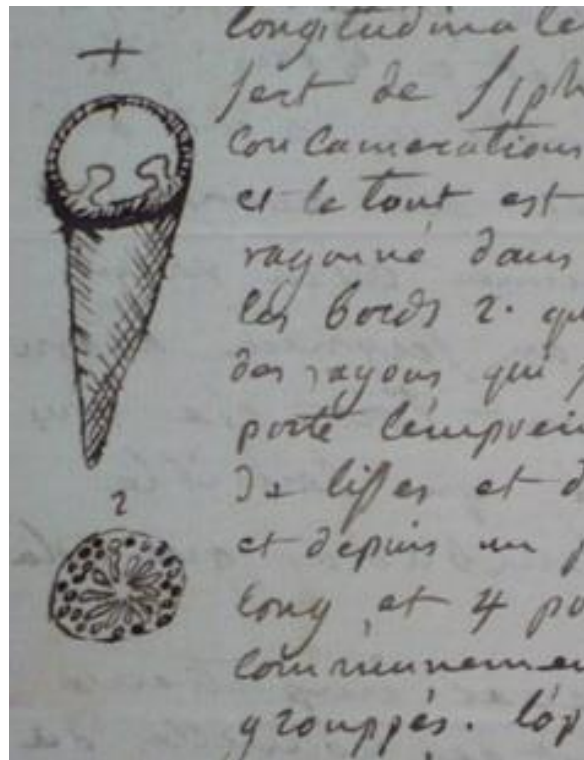 longitudinale
sert de siph
concamerations
et le tout est
rayonné dans
les bords 2. qu
des rayons qui p
porte l'emprein
de lisses et d
et depuis un p
2
long, et 4 po
communnemen
grouppés. l'op